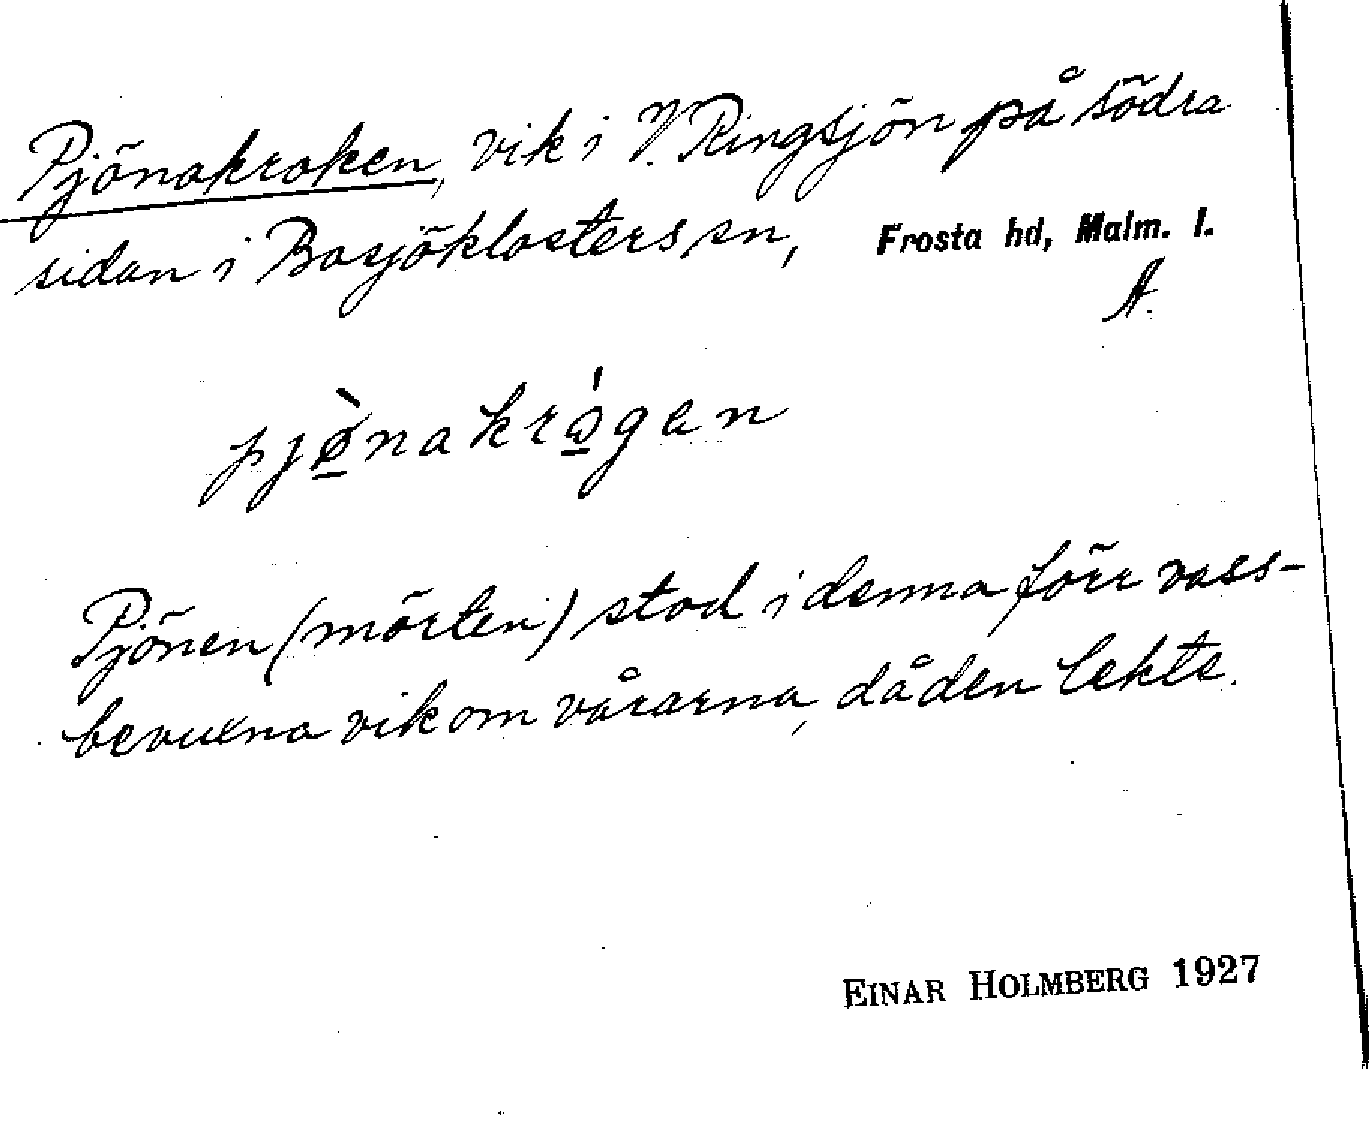 Pjönakroken, vik i V. Ringsjön på södra
sidan i Bosjöklosters sn, Frosta hd, Malm. l.
A.
pjø̠̀nakrǫ́gen
Pjönen (mörten) stod i denna förr vass-
bevuxna vik om vårarna, då den lekte.
EINAR HOLMBERG 1927